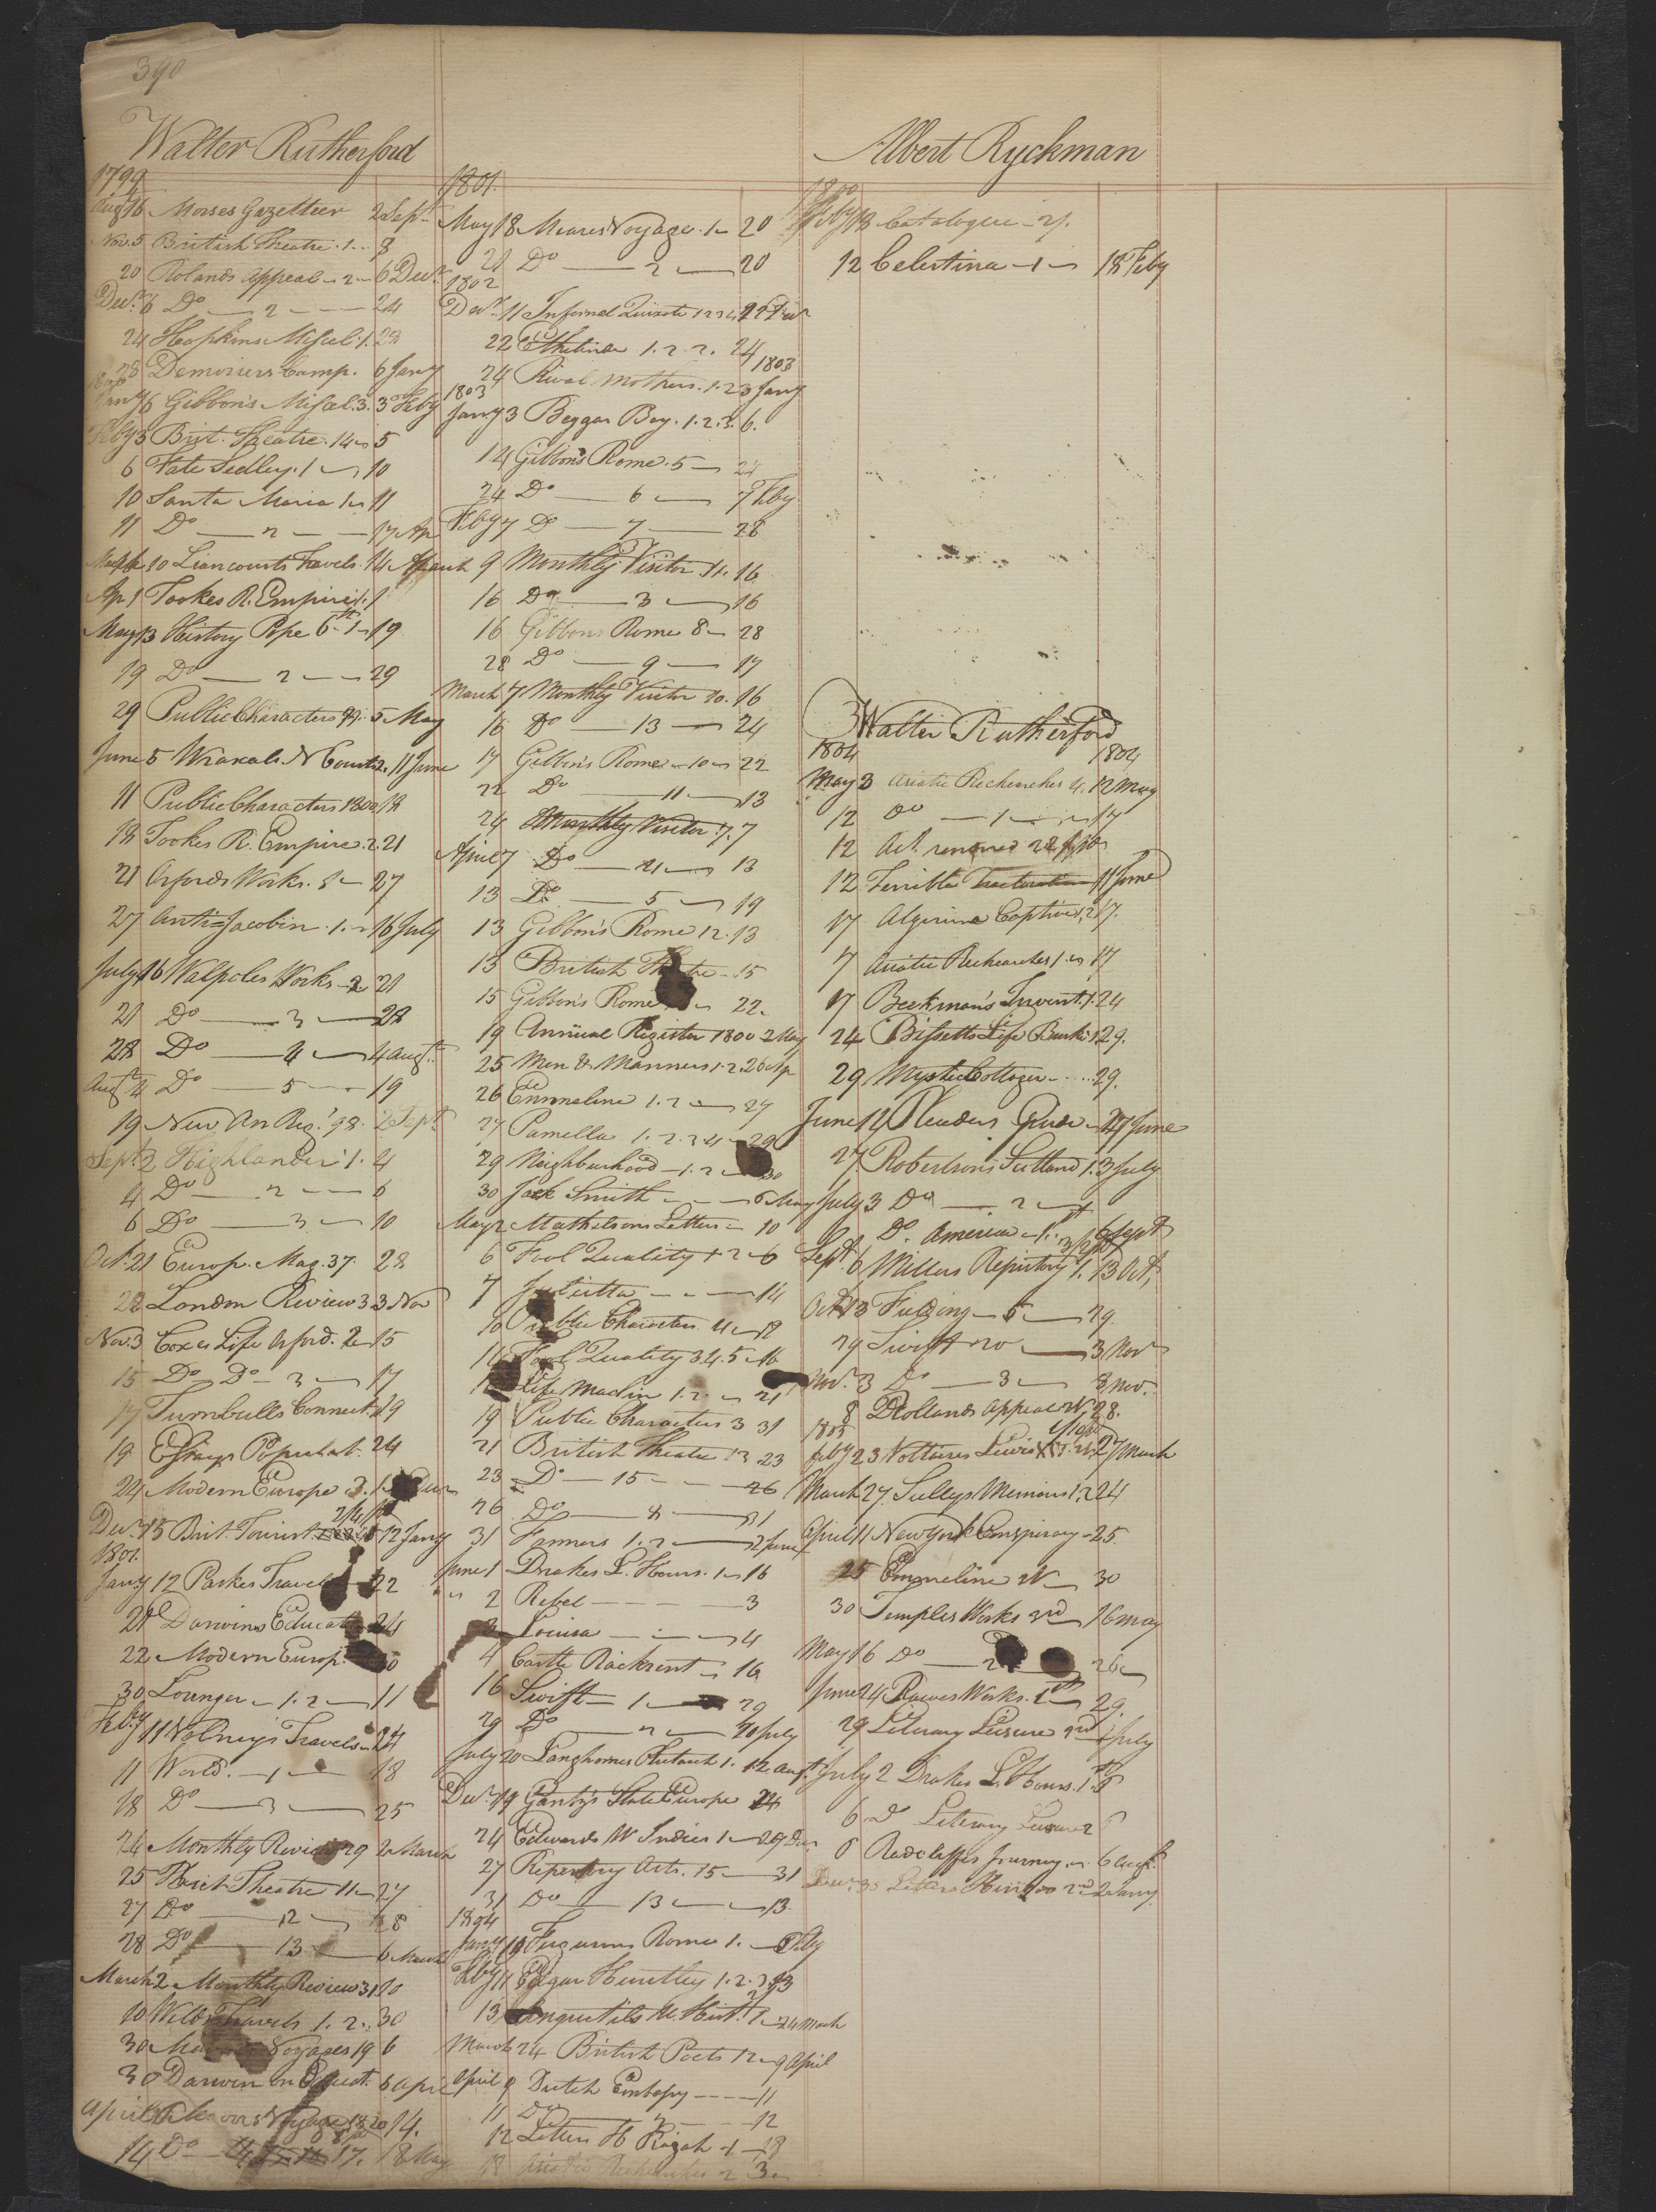 390
Walter Rutherford
1799
Aug 16 Morses Gazetteer 2 Sept
Nov. 5 British Theatre. 1. 8
20 Rolands appeal 2 6 Decr
Decr 6 Do 2 24
24 Hopkins Miscel. 1. 28
28 Demoriers Camp. 6 Jany
1800
Jany 6 Gibbon's Miscel. 3. 3 Feby
Feby 3 Brit. Theatre. 14 5
6 Kate Sedley. 1 10
10 Santa Maria 1 11
11 Do 2 17
10 Liancourts Travels.
Ap 1 Tookes R. Empire 1. 1
May 13 History Pope 6th 1 19
19 Do 2 29
29 Public Characters 5 May
June 5 Wraxals N Courts 2. 11 June
11 Public Characters 1800 18
18 Tookes R. Empire. 2. 21
21 Orfords Works. 27
27 Anti=Jacobin. 1. 16 July
July 16 Walpoles Works 2 21
21 Do 3 28
28 Do 4 4 Augt
Augt 4 Do 5 19
19 New An Reg. '98. 2 Sept
Sept. 2 Highlander 1. 4
4 Do 2 6
6 Do 3 10
Oct. 21 Europ. Mag. 37. 28
28 London Review 3 3 Nov
Nov. 3 Coxes Life Orford. 2 15
15 Do Do 3 17
17 Turnbulls Connect. 19
19 Essays Populat. 24
24 Modern Europe
Decr 15 Brit. Tourist 12 Jany
1801.
Jany 12 Parkes Travels 22
Darwins Educat 24
22 Modern Europ.
30 Lounger 1. 2 11
Feby 11 Volneys Travels 24
11 World. 1 18
18 Do 3 25
24 Monthly Review 29 2 March
25 Brit Theatre 11 27
27 Do 12 28
28 Do 13 6 March
March 2 Monthly Review 31 10
10 Welds Travels 1. 2. 30
30 Voyages 19 6
30 Darwin on Educat. 6 April
April 14.
14 Do 17. 18 May
1801.
May 18 Meares Voyage. 1 20
21 Do 2 20
1802
Decr. 11 Infernal Quixote 1 2 3 4 22 Decr
22 Ethelinde 1. 2. 2. 24
1803
24 Rival Mothers. 1. 2 3 Jany
1803
Jany 3 Beggar Boy. 1. 2. 3. 6.
14 Gibbon's Rome. 5 24
24 Do 6 7 Feby
Feby 7 Do 7 28
9 Monthly Visitor 11. 16
16 Do 3 16
16 Gibbons Rome 8 28
28 Do 9 17
March 7 Monthly Visitor 10. 16
16 Do 13 24
17 Gibbon's Rome 10 22
22 Do 11 13
24 Monthly Visitor. 7. 7
April 7 Do 13
13 Do 5 19
13 Gibbon's Rome 12. 13
13 British Theatre 15
15 Gibbon's Rome 22.
19 Annual Register 1800 2 May
25 Men & Manners 1. 2. 26 Ap
26 Emmeline 1. 2 27
27 Pamella 1. 2. 3 4 29
29 Neighbourhood 1. 2 30
30 Jack Smith 6 May
May 2 Mathesons Letters 10
6 Fool Quality 1 2 6
7 Julietta 14
10 Public Characters 4 19
Fool Quality 3. 4. 5 16
Life Macklin 1. 2. 21
19 Public Characters 3 31
21 British Theatre 13 23
23 Do 15 26
26 Do 31
31 Farmers 1. 2 2 June
June 1 Drakes L. Hours. 1 16
2 Rebel 3
3 Louisa 4
4 Castle Rackrent 16
16 Swift 1 29
29 Do 2 20 July
July 20 Langhornes Plutarch 1. 12 Augt
Decr. 19 Gentzs State Europe 24
24 Edwards W Indies 1 29 Decr
27 Repertory Arts. 15 31
31 Do 13 13
1804
Jany Fergusons Rome 1. Feby
Feby 11 Edgar Huntley 1. 2. 3 13
13 Anquetils U. Hist. 1. 24 March
March 24 British Poets 12 9 April
April 9 Dutch Embassy 11
11 Do 2 12
12 Letters H Rajah 1 18
18 Asiatic Researches 2 3
Albert Ryckman
1800
Feby 12 Catalogue
12 Celestina 1 18 Feby
Walter Rutherford
1804 1804
May 3 Asiatic Rechearches 4. 12 May
12 Do 1 17
12 Act. renewed
12 Terrible Tractoration 11 June
17 Algerine Captive 1, 2 17.
7 Asiatic Rechearches 1 17
17 Beckman's Invent. 1. 24
24 Bissetts Life Burke 1 29.
29 Mystic Cottager 29.
June 12 Pleaders Guide 27 June
27 Robertson's Scotland 1. 3 July
July 3 Do 2
Do. America 1st 6 Sept
Sept. 6 Millers Repository 1. 13 Oct,
Oct 13 Fielding 5 29.
29 Swift 20 3 Nov
Nov. 3 Do 3 8 Nov.
8 Rollands Appeal 28.
1805
Feby 23 Voltaires Lewis 27 March
March 27. Sullys Memoirs 1. 2 24
April 11 New York Conspiracy 25
25 Emmeline 30
30 Temples Works 3rd 16 May
May 16 Do 2 26
June 24 Rowes Works. 1st 29.
29 Literary Leisure 2nd July
July 2 Drakes L. Hours. 1st 6
6 Do Literary Leisure 2 6
6 Radcliffes Journey 6 Augt.
Decr. 30 Letters Hindoo 2nd 2 Jany.